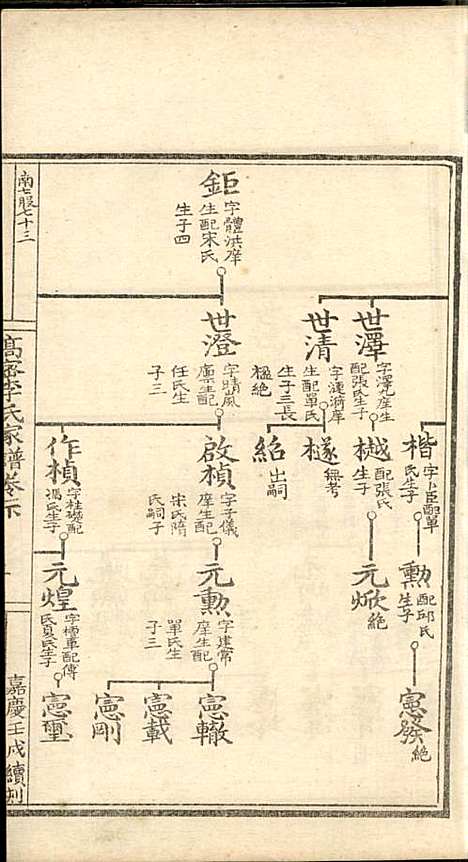 鉅
字體洪庠
生配宋氏
生子四
世澤
字澤九庠生
配張氏生子
世清
字漣漪庠
生配單氏
生子三長
楹絶
世澄
字晴嵐
廩生配
任氏生
子三
楷
字卜臣配單
氏生子
樾
配張氏
生子
檖
無考
紹
出嗣
啟楨
字子儀
庠生配
宋氏隋
氏嗣子
作楨
字桂礎配
馮氏生子
勳
配邱氏
生子
元焮
絶
元勳
字建常
庠生配
單氏生
子三
元煌
配傅
氏真氏生子
憲發
絶
憲轍
憲載
憲剛
憲璽
南七服七十三
高密李氏家譜卷下
嘉慶壬戌續刻